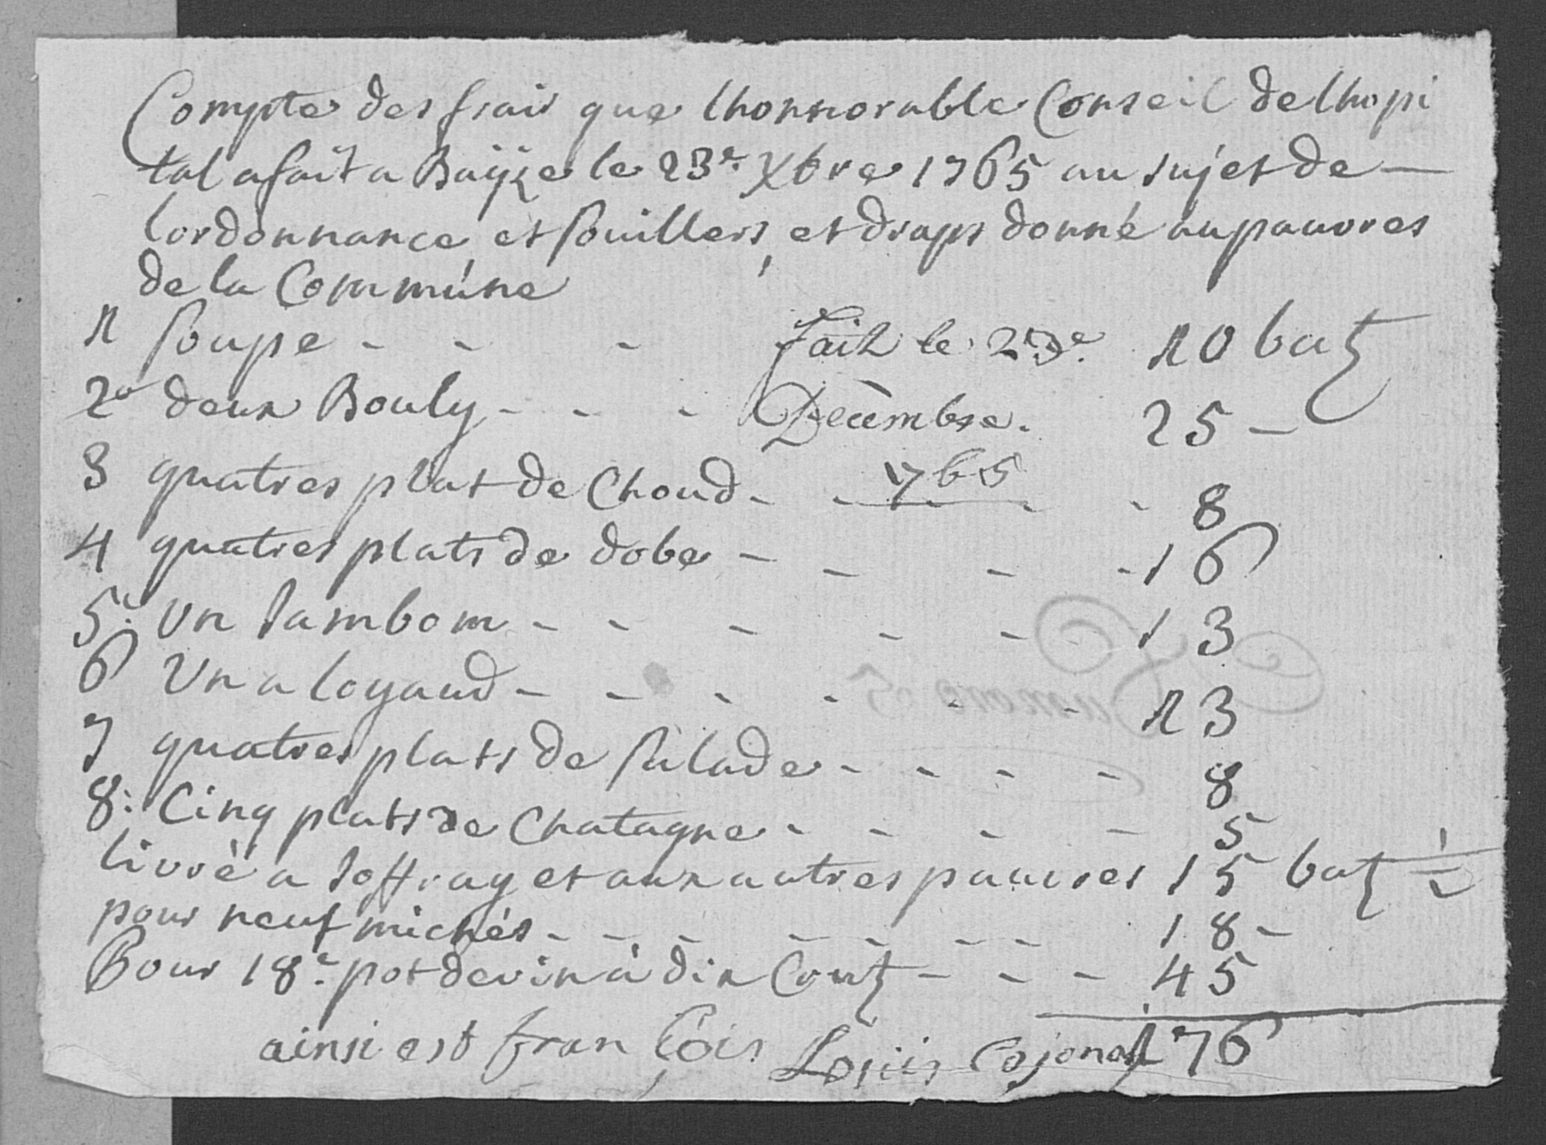 Compte des frais que lhonnorable Conseil de lhopi
tal a fait a Bayÿe le 23e Xbre 1765 au sujet de —
lordonnance, et souillers, et draps donné au pauvres
de la Commúne
1 soupe - - - fait le 23e 10 batz
2o deux Bouly - - - Decèmbre. 25 —
3 quatres plat de Choud - - 1765 - - 8
4 quatres plats de dobe - - - - 16
5: Un Jambom - - - - - 13
6 Un a loyaud - - - - - - 13
7 quatres plats de salade - - - - 8
8: Cinq plats de Chatagne - - - - 5
livrè a Joffray et aux autres pauvres 15 batz ½
pour neuf michés - - - - - - - 18 -
Pour 18e pot de vin à dix Crutz - - - 45
176
ainsi est fran çois Louis Cojonay